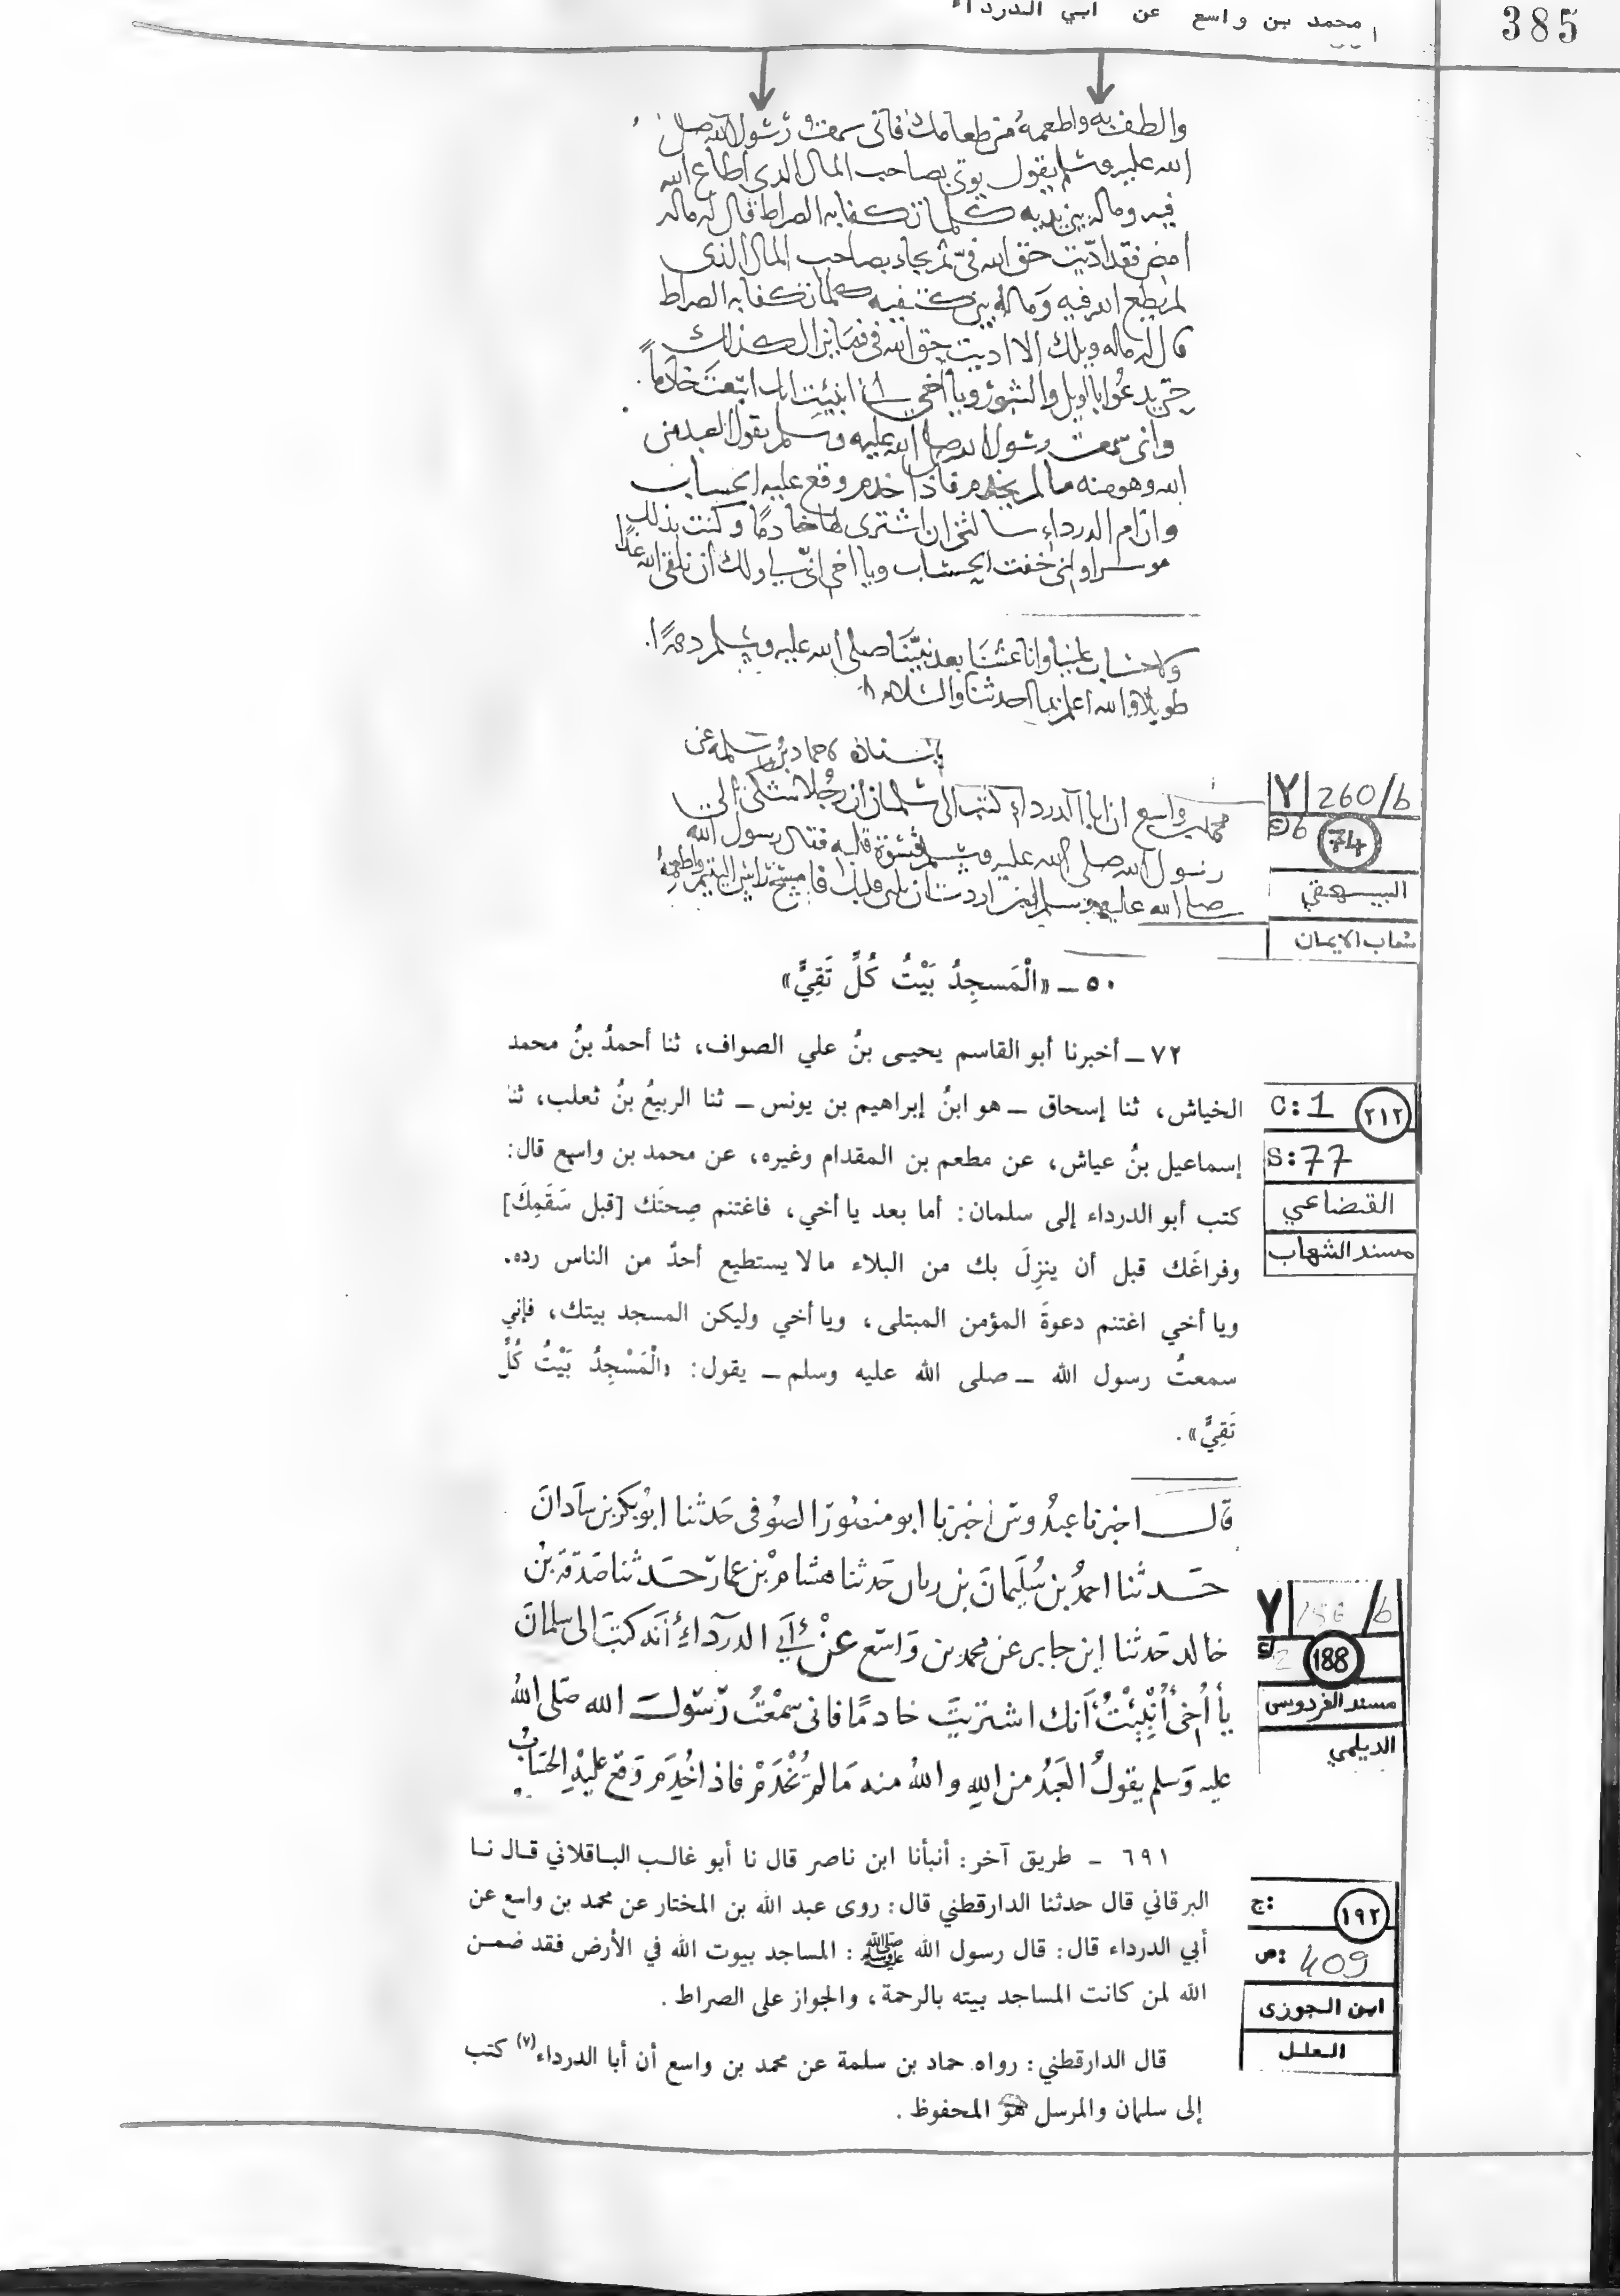 385
محمد بن واسع عن ابي الدرداء
والطف به واطعمه من طعامك فاني سمعت رسول الله صلى
الله عليه وسلم يقول يوتى بصاحب المال الذي اطاع الله
فيه وماله بين يديه كلما تكفا به الصراط قال له ماله
امض فقد اديت حق الله فيّ ثم يجاء بصاحب المال الذى
لم يطع الله فيه وماله بين كتفيه كلما تكفا به الصراط
قال له ماله ويلك الا اديت حق الله في فما يزال كذلك
حتى يدعوا بالويل والثبور ويا أخي انبئت انك ابتعت خادماً
وانى سمعت رسول الله صلى الله عليه وسلم يقول العبد من
الله وهو منه ما لم يخدم فاذا خدم وقع عليه الحساب
وان ام الدرداء سالتنى ان اشترى لها خادمًا وكنت بذلك
موسرا وانى خفت الحساب ويا اخى لي ولك أن نلقى الله غدًا
ولا حساب علينا وانا عشنا بعد نبيّنا صلى الله عليه وسلم دهرًا
طويلا والله اعلم بما احدثنا والسلام
حماد بن سلمه عن
محمد بن واسع ان ابا الدرداء كتب الى سلمان ان رجلا شكى الى
رسول الله صلى الله عليه وسلم قسوة قلبه فقال رسول الله
صلى الله عليه وسلم ان اردت ان يلين قلبك فامسح راس اليتيم واطعمه
Y 260/b
6 74
البيهقي
شعاب الايمان
٥٠ ــ «الْمَسجِدُ بَيْتُ كُلِّ تَقِيٍّ»
٧٢ ــ أخبرنا أبو القاسم يحيى بنُ علي الصواف، ثنا أحمدُ بنُ محمد
الخياش، ثنا إسحاق ــ هو ابنُ إبراهيم بن يونس ــ ثنا الربيعُ بنُ ثعلب، ثنا
إسماعيل بنُ عياش، عن مطعم بن المقدام وغيره، عن محمد بن واسع قال:
كتب أبو الدرداء إلى سلمان: أما بعد يا أخي، فاغتنم صِحتَك [قبل سَقَمِكَ]
وفراغَك قبل أن ينزِلَ بك من البلاء ما لا يستطيع أحدٌ من الناس رده.
ويا أخي اغتنم دعوةَ المؤمن المبتلى، ويا أخي وليكن المسجد بيتك، فإني
سمعتُ رسول الله ــ صلى الله عليه وسلم ــ يقول: «الْمَسْجِدُ بَيْتُ كُلِّ
تَقِيٍّ».
C:1 ٢١٢
S:77
القضاعي
مسند الشهاب
قال اخبرنا عبدوس اخبرنا ابو منصور الصوفى حدثنا ابو بكر بن شاذان
حدثنا احمد بن سليمان بن حدثنا هشام بن عمار حدثنا صدقة بن
خالد حدثنا ابن جابر عن محمد بن واسع عن أبي الدرداء أنه كتب الى سلمان
يا أخى أنبئت أنك اشتريت خادمًا فانى سمعت رسول الله صلى الله
عليه وسلم يقول العبد من الله والله منه مالم يُخْدَمْ فاذا خُدِمَ وَقَع عليه الحساب
Y /b
188
مسند الفردوس
الديلمي
٦٩١ - طريق آخر: أنبأنا ابن ناصر قال نا أبو غالب الباقلاني قال نا
البرقاني قال حدثنا الدارقطني قال: روى عبد الله بن المختار عن محمد بن واسع عن
أبي الدرداء قال: قال رسول الله ﷺ: المساجد بيوت الله في الأرض فقد ضمن
الله لمن كانت المساجد بيته بالرحمة، والجواز على الصراط.
قال الدارقطني: رواه حماد بن سلمة عن محمد بن واسع أن أبا الدرداء(٧) كتب
إلى سلمان والمرسل هو المحفوظ.
ج: ١٩٢
ص: 409
ابن الجوزى
العلل